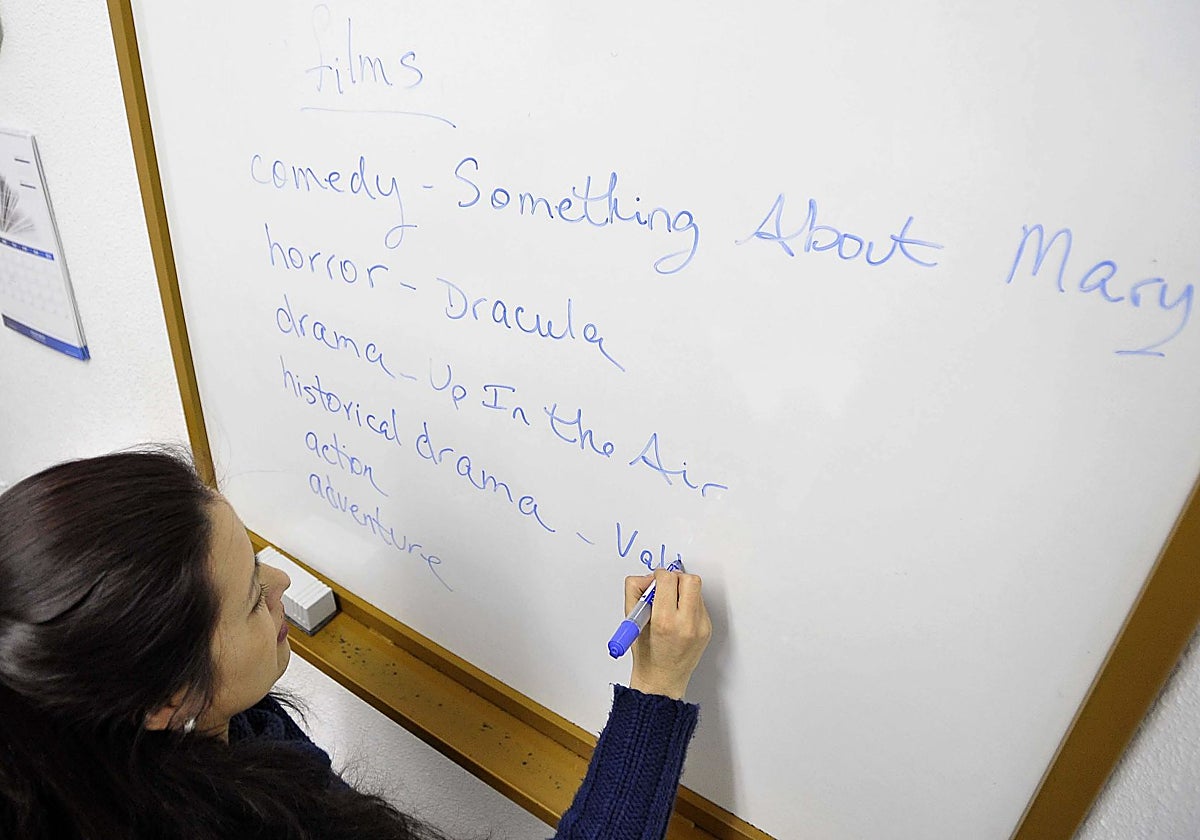 films
comedy - Something About Mary
horror - Dracula
drama - Up In the Air
historical drama -
action
adventure